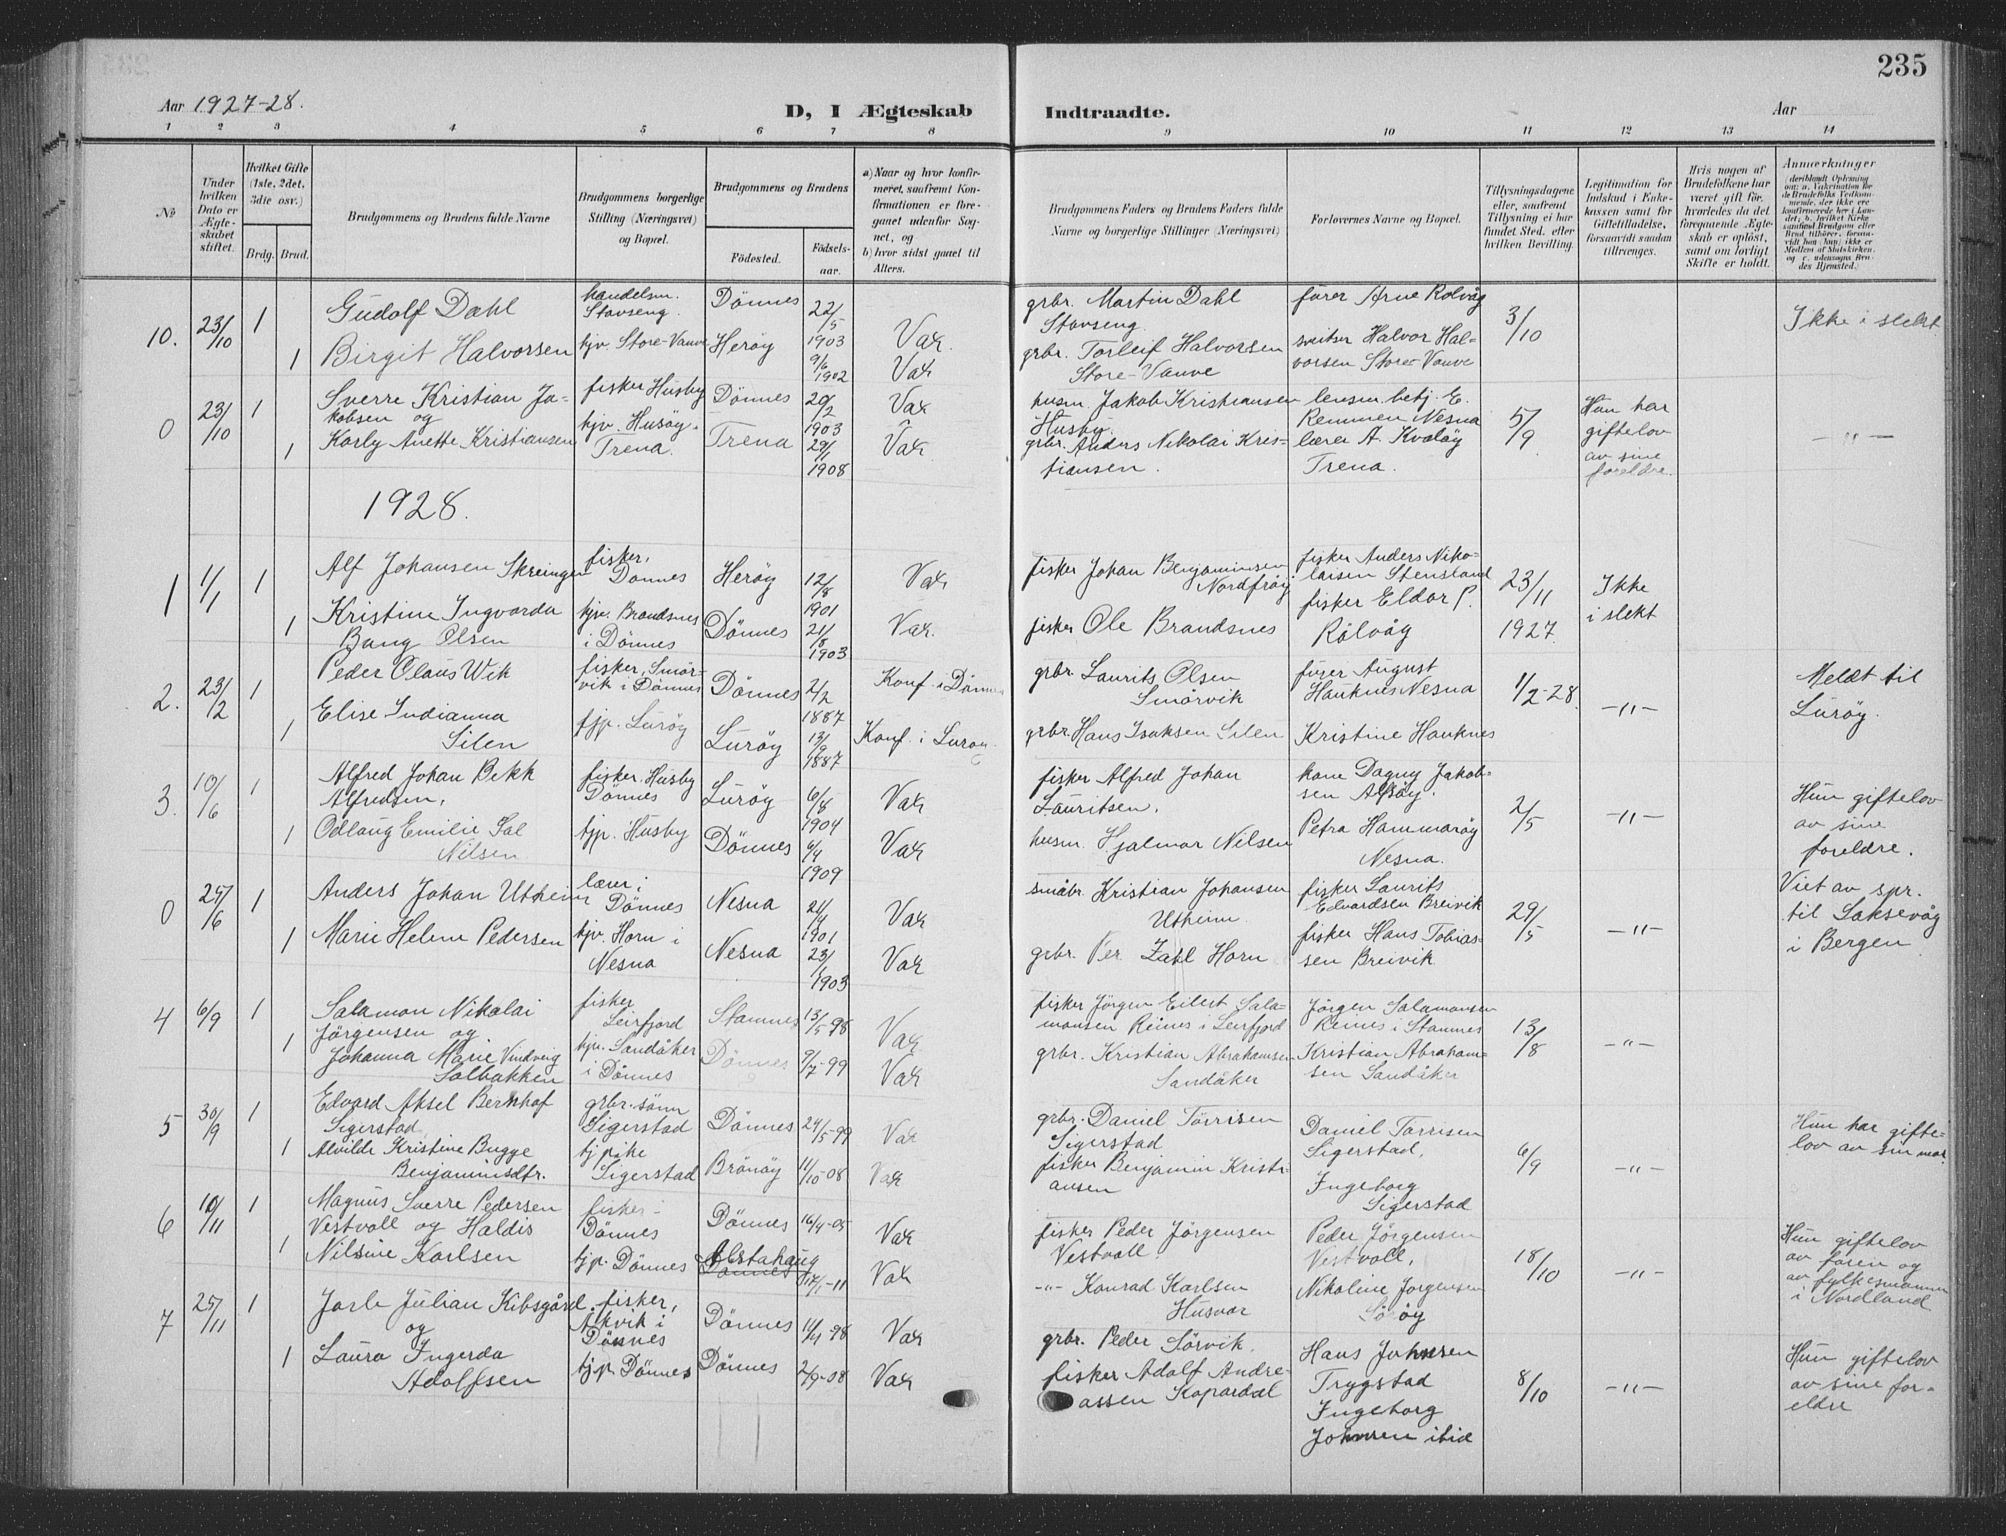 235
Aar 1927-28.
D, I Ægteskab Indtraadte. Aar
1 2 3 4 5 6 7 8 9 10 11 12 13 14
№
Under hvilken Dato er Ægteskabet stiftet.
Hvilket Gifte (1ste, 2det, 3die osv.)
Brdg. Brud.
Brudgommens og Brudens fulde Navne
Brudgommens borgerlige Stilling (Næringsvei) og Bopæl.
Brudgommens og Brudens
Fødested. Fødsels-aar.
a) Naar og hvor konfirmeret, saafremt Konfirmationen er foregaaet udenfor Sognet, og
b) hvor sidst gaaet til Alters.
Brudgommens Faders og Brudens Faders fulde Navne og borgerlige Stillinger (Næringsvei)
Forlovernes Navne og Bopæl.
Tillysningsdagene eller, saafremt Tillysning ei har fundet Sted, efter hvilken Bevilling.
Legitimation for Indskud i Enkekassen samt for Giftetilladelse, forsaavidt saadan tiltrænges.
Hvis nogen af Brudefolkene har været gift før, hvorledes da det foregaaende Ægteskab er opløst, samt om lovligt Skifte er holdt.
Anmærkninger
10. 23/10 1 Gudolf Dahl handelsm. Stavseng. Dönnes 22/5 1903 Vax. grbr. Martin Dahl Stavseng. fører Arne Rölvåg 3/10 Ikke i slekt
1 Birgit Halvorsen tjv. Store-Vanve Herøy 9/6 1902 Vax grbr. Torleif Halvorsen Store-Vanve sveitser Halvor Halvorsen Store-Vanve
0 23/10 1 Sverre Kristian Jakobsen og fisker Husby Dönnes 20/2 1903 Vax husm. Jakob Kristiansen Husby. lensm. betj. E. Remmen Nesna 5/9 Hun har giftelov av sine foreldre. -"-
1 Karly Anette Kristiansen tjv. Husöy. Trena. Trena 29/11 1908 Vax grbr. Anders Nikolai Kristiansen. lærer A. Kvalöy Trena.
1928.
1 1/1 1 Alf Johansen Skreingen fisker, Dönnes Heröy 12/8 1901 Vax fisker Johan Benjaminsen Nordfröy fisker Anders Nikolaisen Stensland 23/11 1927 Ikke i slekt
1 Kristine Ingvarda Bang Olsen tjv. Brandsnes i Dönnes Dönnes 21/8 1903 Vax. fisker Ole Brandsnes fisker Eldar P. Rölvåg
2. 23/2 1 Peder Olaus Wik fisker, Smörvik i Dönnes Dönnes 2/2 1887 Konf. i Dönnes grbr. Laurits Olsen Smörvik fører August Hauknes Nesna 1/2-28. -"- Meldt til Luröy.
1 Elise Indianna Silen tjp. Luröy Luröy 13/9 1887 Konf. i Luröy. grbr. Hans Isaksen Silen Kristine Hauknes
3. 10/6 1 Alfred Johan Bekk Alfredsen, fisker, Husby Dönnes Luröy 6/8 1904 Vax fisker Alfred Johan Lauritsen. kone Dagny Jakobsen Alsöy. 2/5 -"- Hun giftelov av sine foreldre.
1 Odlaug Emilie Sal Nilsen tjp. Husby Dönnes 6/4 1909 Vax husm. Hjalmar Nilsen Petra Hammaröy Nesna.
0 25/6 1 Anders Johan Utheim lærer i Dönnes Nesna 21/4 1901 Vax småbr. Kristian Johansen Utheim fisker Laurits Edvardsen Breivik 29/5 -"- Viet av spr. til Laksevåg i Bergen
1 Marie Helene Pedersen tjv. Horn i Nesna Nesna 23/1 1903 Vax grbr. Per Zahl Horn fisker Hans Tobiassen Breivik
4 6/9 1 Salamon Nikolai Jörgensen og fisker Leirfjord Stamnes 13/5-98 Vax fisker Jörgen Eilert Salamonsen Reines i Leirfjord Jörgen Salamonsen Reines i Stamnes 13/8 -"-
1 Johanna Marie Vindveig Solbakken tjv. Sandåker i Dönnes Dönnes 9/7-99 Vax grbr. Kristian Abrahamsen Sandåker Kristian Abrahamsen Sandåker
5 30/9 1 Edvard Aksel Bernhof Sigerstad grbr. sönn Sigerstad Dönnes 24/5-99 Vax grbr. Daniel Torrisen Sigerstad Daniel Torrisen Sigerstad, 6/9 -"- Hun har giftelov av sin mor.
1 Alvilde Kristine Bugge Benjaminsdtr. tjpike Sigerstad Brönöy 11/10-08 Vax fisker Benjamin Kristiansen Ingeborg Sigerstad
6 10/11 1 Magnus Sverre Pedersen Vestvoll og Haldis fisker - Dönnes Dönnes 16/4-05 Vax fisker Peder Jörgensen Vestvoll. Peder Jörgensen Vestvoll, 18/10 -"- Hun giftelov av faren og av fylkesmannen i Nordland
1 Nilsine Karlsen tjp. Dönnes Alstahaug Dönnes 17/1-11 Vax -"- Konrad Karlsen Husvær Nikoline Jörgensen
7 25/11 1 Jarle Julian Kibsgård og fisker, Åkvik i Dönnes Dönnes 11/11-98 Vax grbr. Peder Sörvik. Hans Johnsen Trygstad 8/10 -"- Hun giftelov av sine foreldre
1 Laura Ingerda Adolfsen tjp. Dönnes Dönnes 2/9-08 Vax fisker Adolf Andreassen Kopardal Ingeborg Johnsen ibid